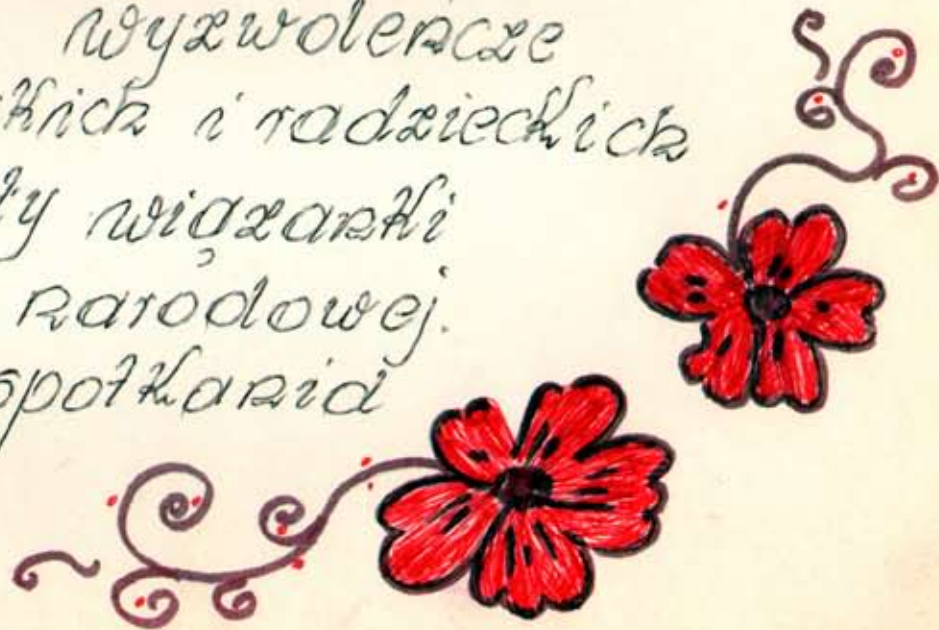 wyzwoleńcze
kich i radzieckich
ły wiązanki
narodowej.
spotkania